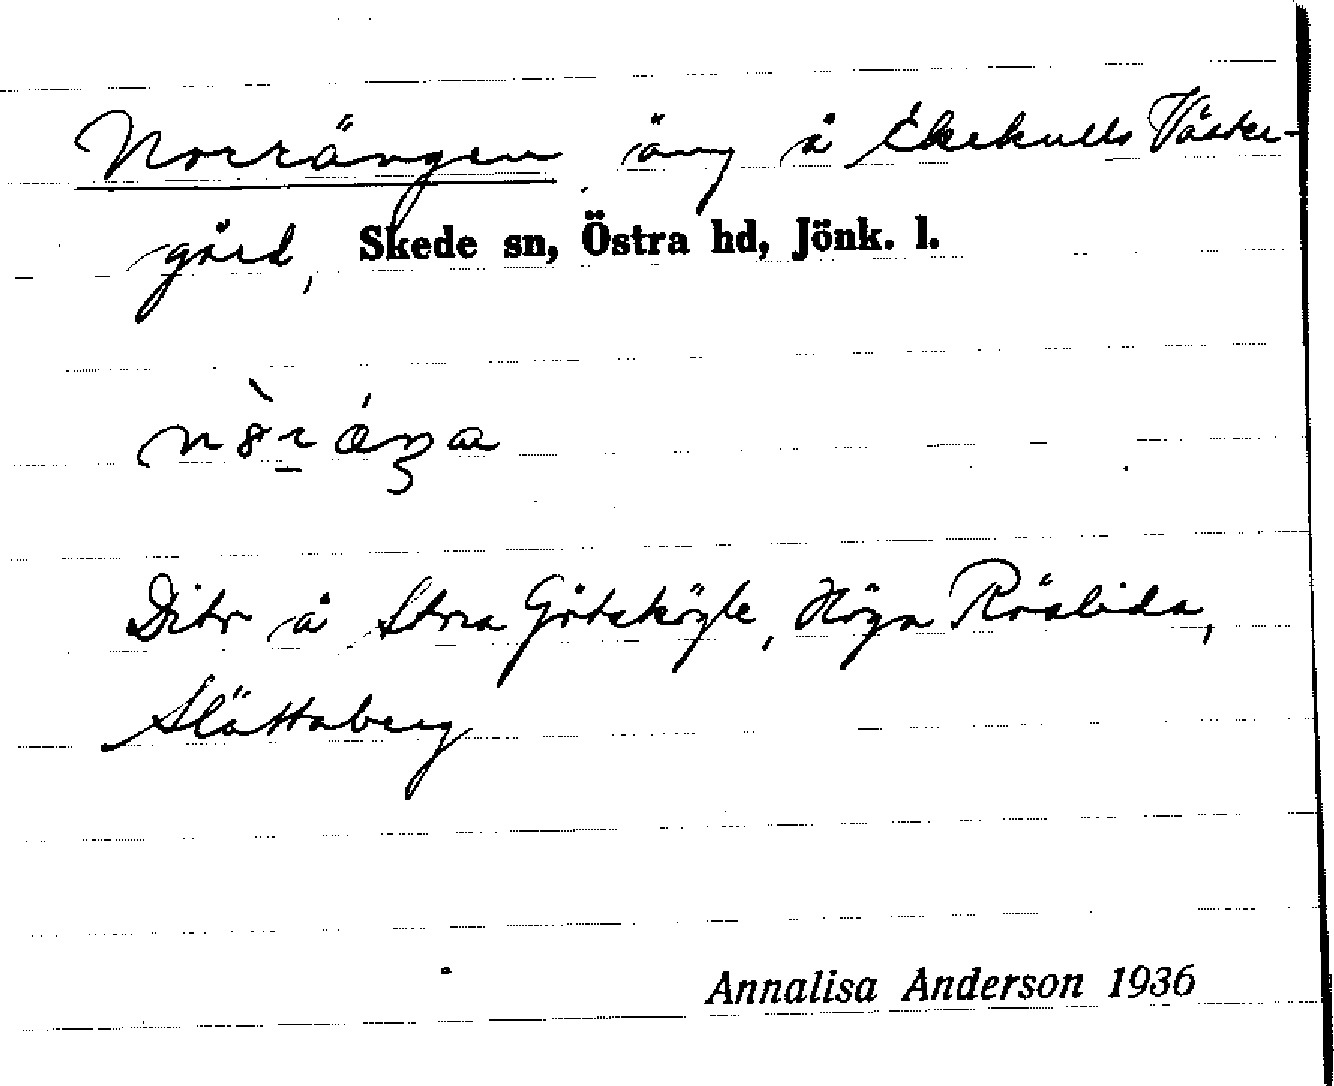 Norrängen äng å Ekekulls Väster-
gård, Skede sn, Östra hd, Jönk. l.
Dito å Stora Götskögle, Höga Röslida,
Slättaberg
Annalisa Anderson 1936